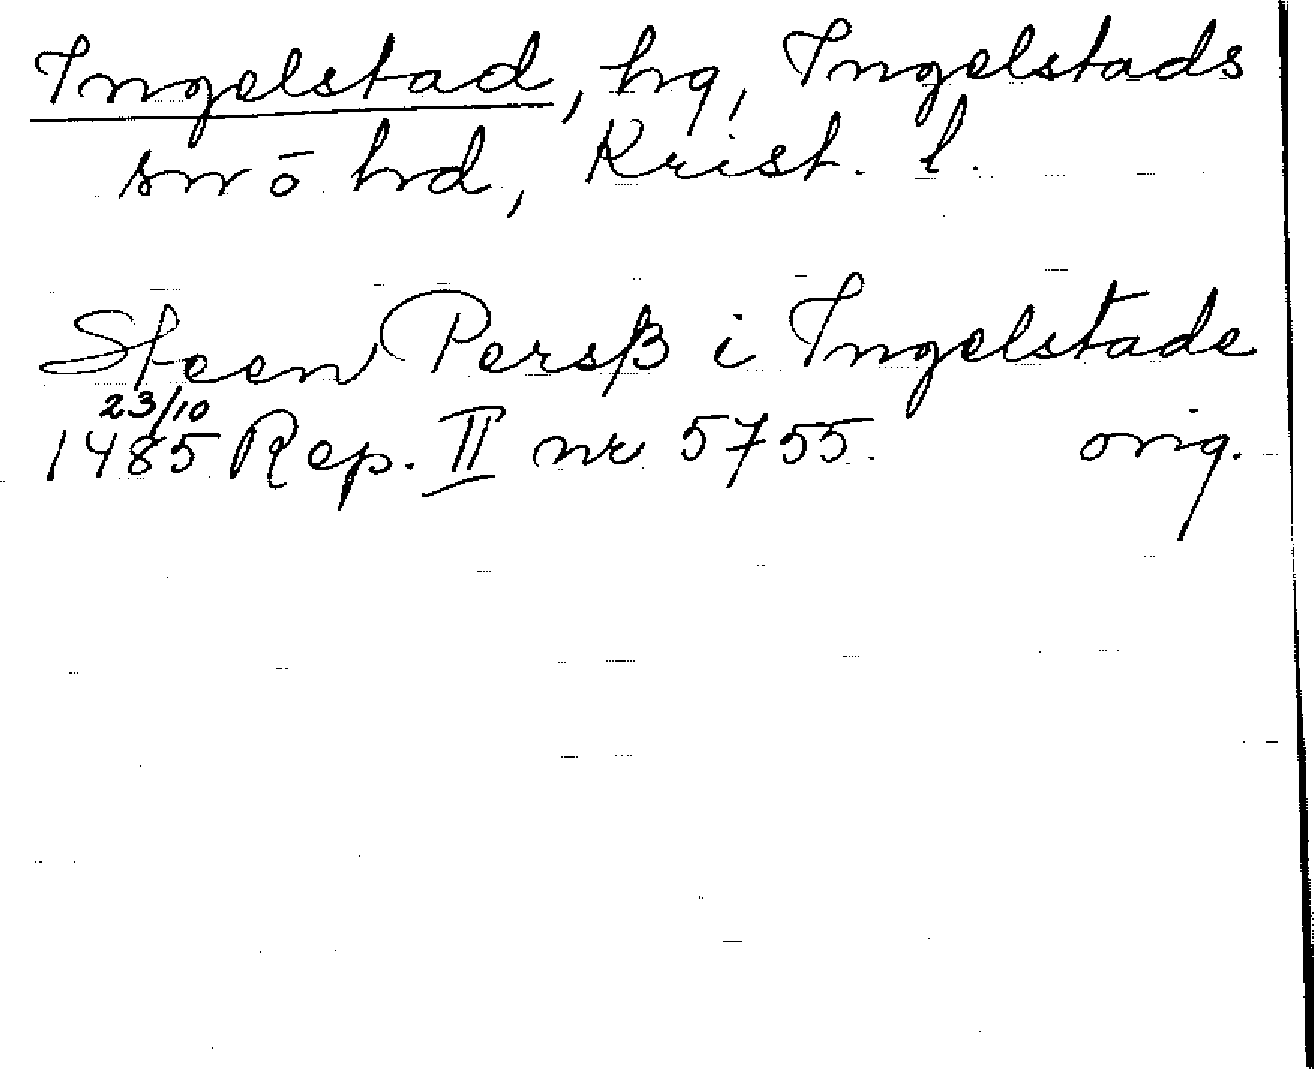 Ingelstad, hg, Ingelstads
sn ö hd, Krist. l.
Steen Persß i Ingelstade
23/10
1485 Rep. II nr 5755. orig.